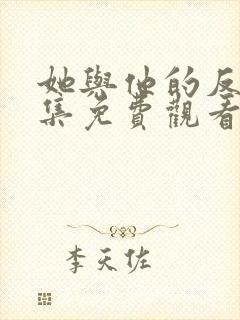 她與他的反
集免費觀看
李天佐